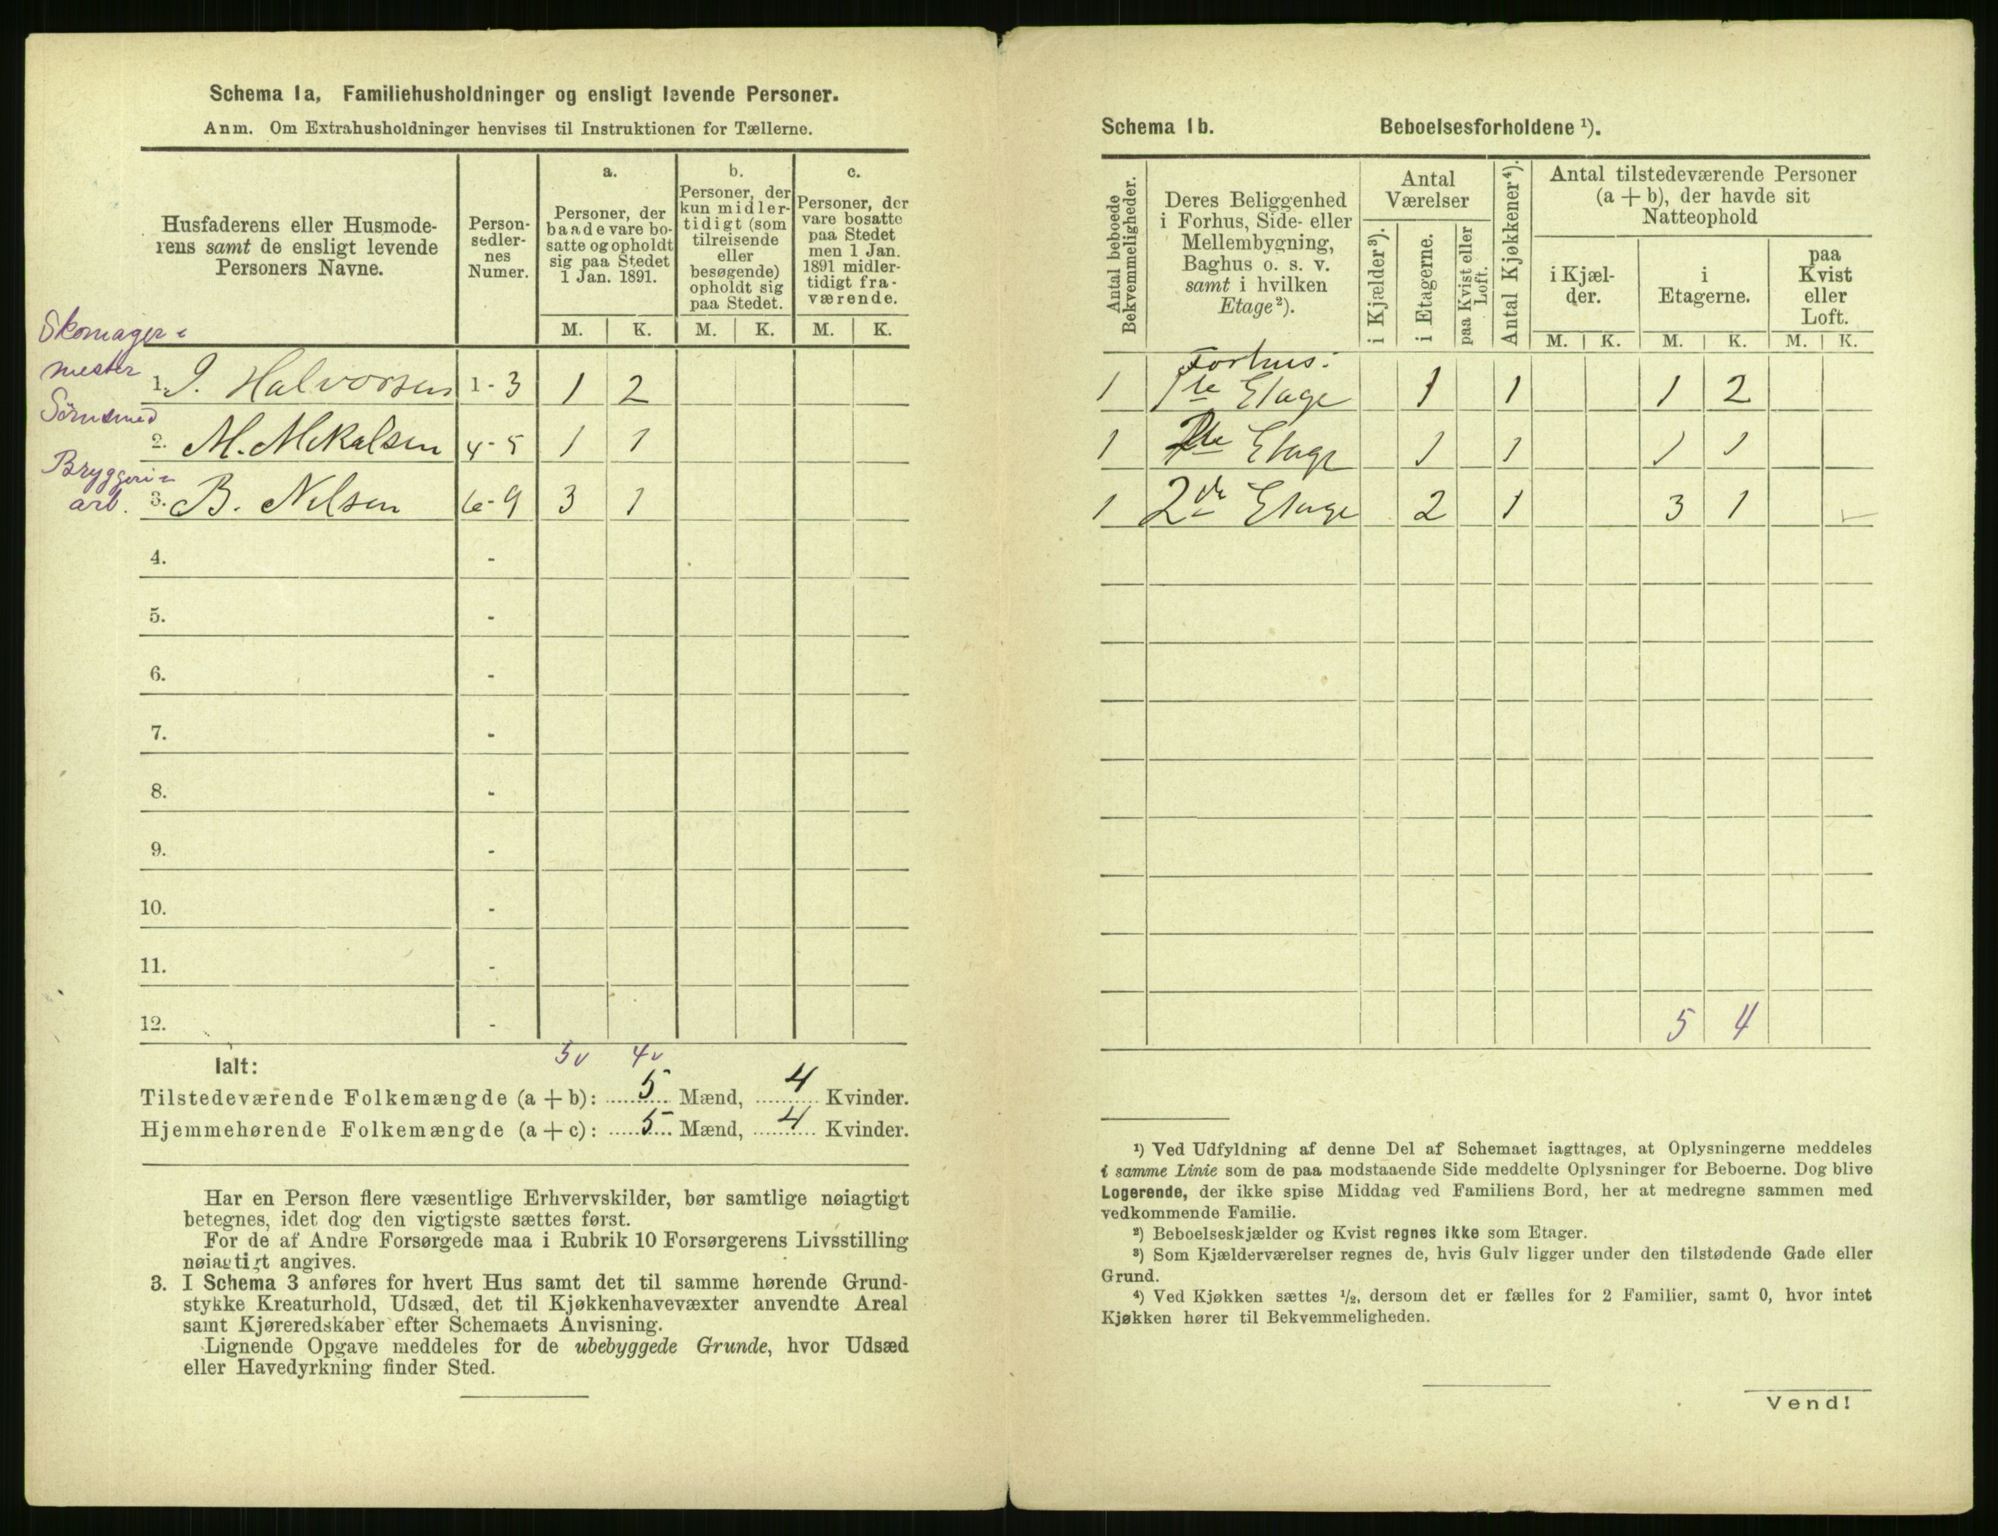 Schema 1a, Familiehusholdninger og ensligt levende Personer.
Anm. Om Extrahusholdninger henvises til Instruktionen for Tællerne.
Husfaderens eller Husmode-
rens samt de ensligt levende
Personers Navne.
Person-
sedler-
nes
Numer.
a.
Personer, der
baade vare bo-
satte og opholdt
sig paa Stedet
1 Jan. 1891.
b.
Personer, der
kun midler-
tidigt (som
tilreisende
eller
besøgende)
opholdt sig
paa Stedet.
c.
Personer, der
vare bosatte
paa Stedet
men 1 Jan.
1891 midler-
tidigt fra-
værende.
M. K. M. K. M. K.
Skomager-
mester
1. J. Halvorsen 1 - 3 1 2
2. M. Mikalsen 4 - 5 1 1
Bryggeri-
arb.
3. B. Nilsen 6 - 9 3 1
4. -
5. -
6. -
7. -
8. -
9. -
10. -
11. -
12. -
5v 4v
Ialt:
Tilstedeværende Folkemængde (a + b): 5 Mænd, 4 Kvinder.
Hjemmehørende Folkemængde (a + c): 5 Mænd, 4 Kvinder.
Har en Person flere væsentlige Erhvervskilder, bør samtlige nøiagtigt
betegnes, idet dog den vigtigste sættes først.
For de af Andre Forsørgede maa i Rubrik 10 Forsørgerens Livsstilling
nøiagtigt angives.
3. I Schema 3 anføres for hvert Hus samt det til samme hørende Grund-
stykke Kreaturhold, Udsæd, det til Kjøkkenhavevæxter anvendte Areal
samt Kjøreredskaber efter Schemaets Anvisning.
Lignende Opgave meddeles for de ubebyggede Grunde, hvor Udsæd
eller Havedyrkning finder Sted.
Schema 1b. Beboelsesforholdene ¹).
Antal beboede
Bekvemmeligheder.
Deres Beliggenhed
i Forhus, Side- eller
Mellembygning,
Baghus o. s. v.
samt i hvilken
Etage²).
Antal
Værelser
i Kjælder³).
i Etagerne.
paa Kvist eller
Loft.
Antal Kjøkkener⁴).
Antal tilstedeværende Personer
(a + b), der havde sit
Natteophold
i Kjæl-
der.
i
Etagerne.
paa
Kvist
eller
Loft.
M. K. M. K. M. K.
Forhus:
1 1ste Etage 1 1 1 2
1 Etage 1 1 1 1
1 2den Etage 2 1 3 1
5 4
¹) Ved Udfyldning af denne Del af Schemaet iagttages, at Oplysningerne meddeles
i samme Linie som de paa modstaaende Side meddelte Oplysninger for Beboerne. Dog blive
Logerende, der ikke spise Middag ved Familiens Bord, her at medregne sammen med
vedkommende Familie.
²) Beboelseskjælder og Kvist regnes ikke som Etager.
³) Som Kjælderværelser regnes de, hvis Gulv ligger under den tilstødende Gade eller
Grund.
⁴) Ved Kjøkken sættes ½, dersom det er fælles for 2 Familier, samt 0, hvor intet
Kjøkken hører til Bekvemmeligheden.
Vend!